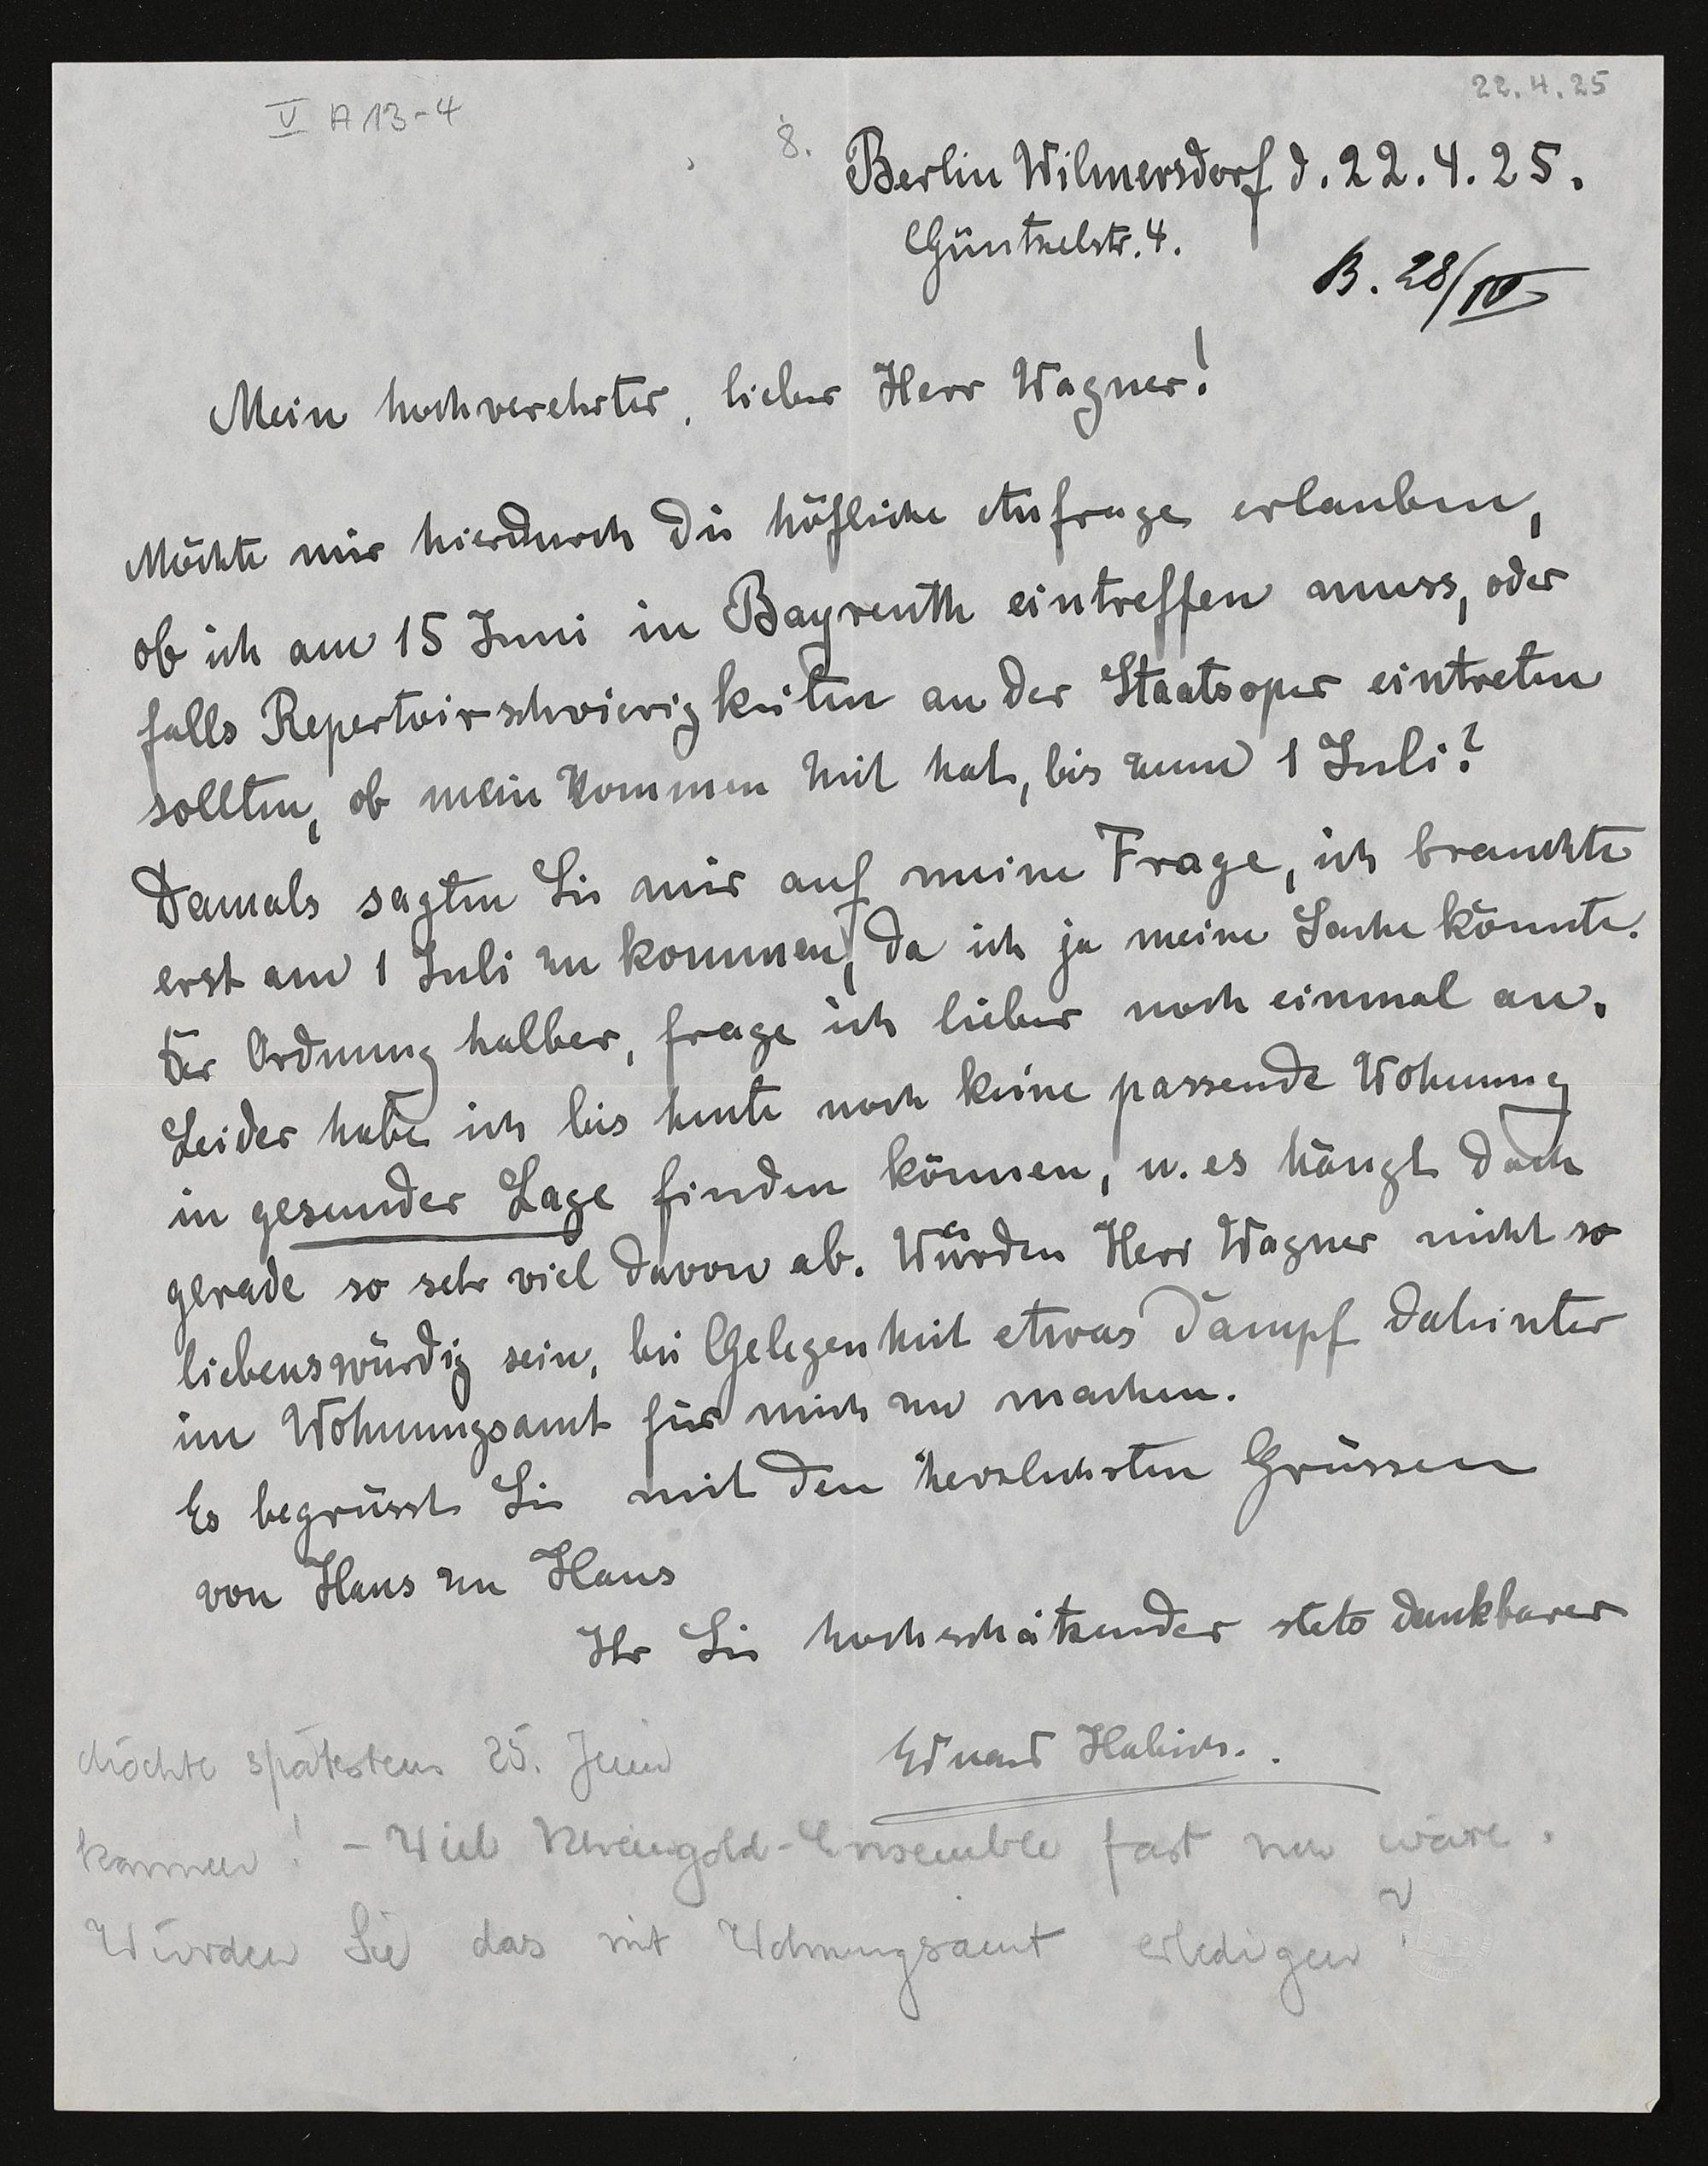 V A 13-4
22.4.25
8.
Berlin Wilmersdorf d. 22.4.25.
Güntzelstr. 4.
B. 28/IV
Mein hochverehrter, lieber Herr Wagner!
Möchte mir hierdurch die höfliche Anfrage erlauben,
ob ich am 15 Juni in Bayreuth eintreffen muss, oder
falls Repertoirschwierigkeiten an der Staatsoper eintreten
sollten, ob mein Kommen Zeit hat, bis zum 1 Juli?
Damals sagten Sie mir auf meine Frage, ich brauchte
erst am 1 Juli zu kommen, da ich ja meine Sache könnte.
Der Ordnung halber, frage ich lieber noch einmal an.
Leider habe ich bis heute noch keine passende Wohnung
in gesunder Lage finden können, u. es hängt doch
gerade so sehr viel davon ab. Würden Herr Wagner nicht so
liebenswürdig sein, bei Gelegenheit etwas Dampf dahinter
im Wohnungsamt für mich zu machen.
Es begrüsst Sie mit den herzlichsten Grüssen
von Haus zu Haus
Ihr Sie hochschätzender stets dankbarer
Eduard Habich.
Möchte spätestens 25. Juni
kommen! - Weil Rheingold-Ensemble fast neu wäre.
Würden Sie das mit Wohnungsamt erledigen?